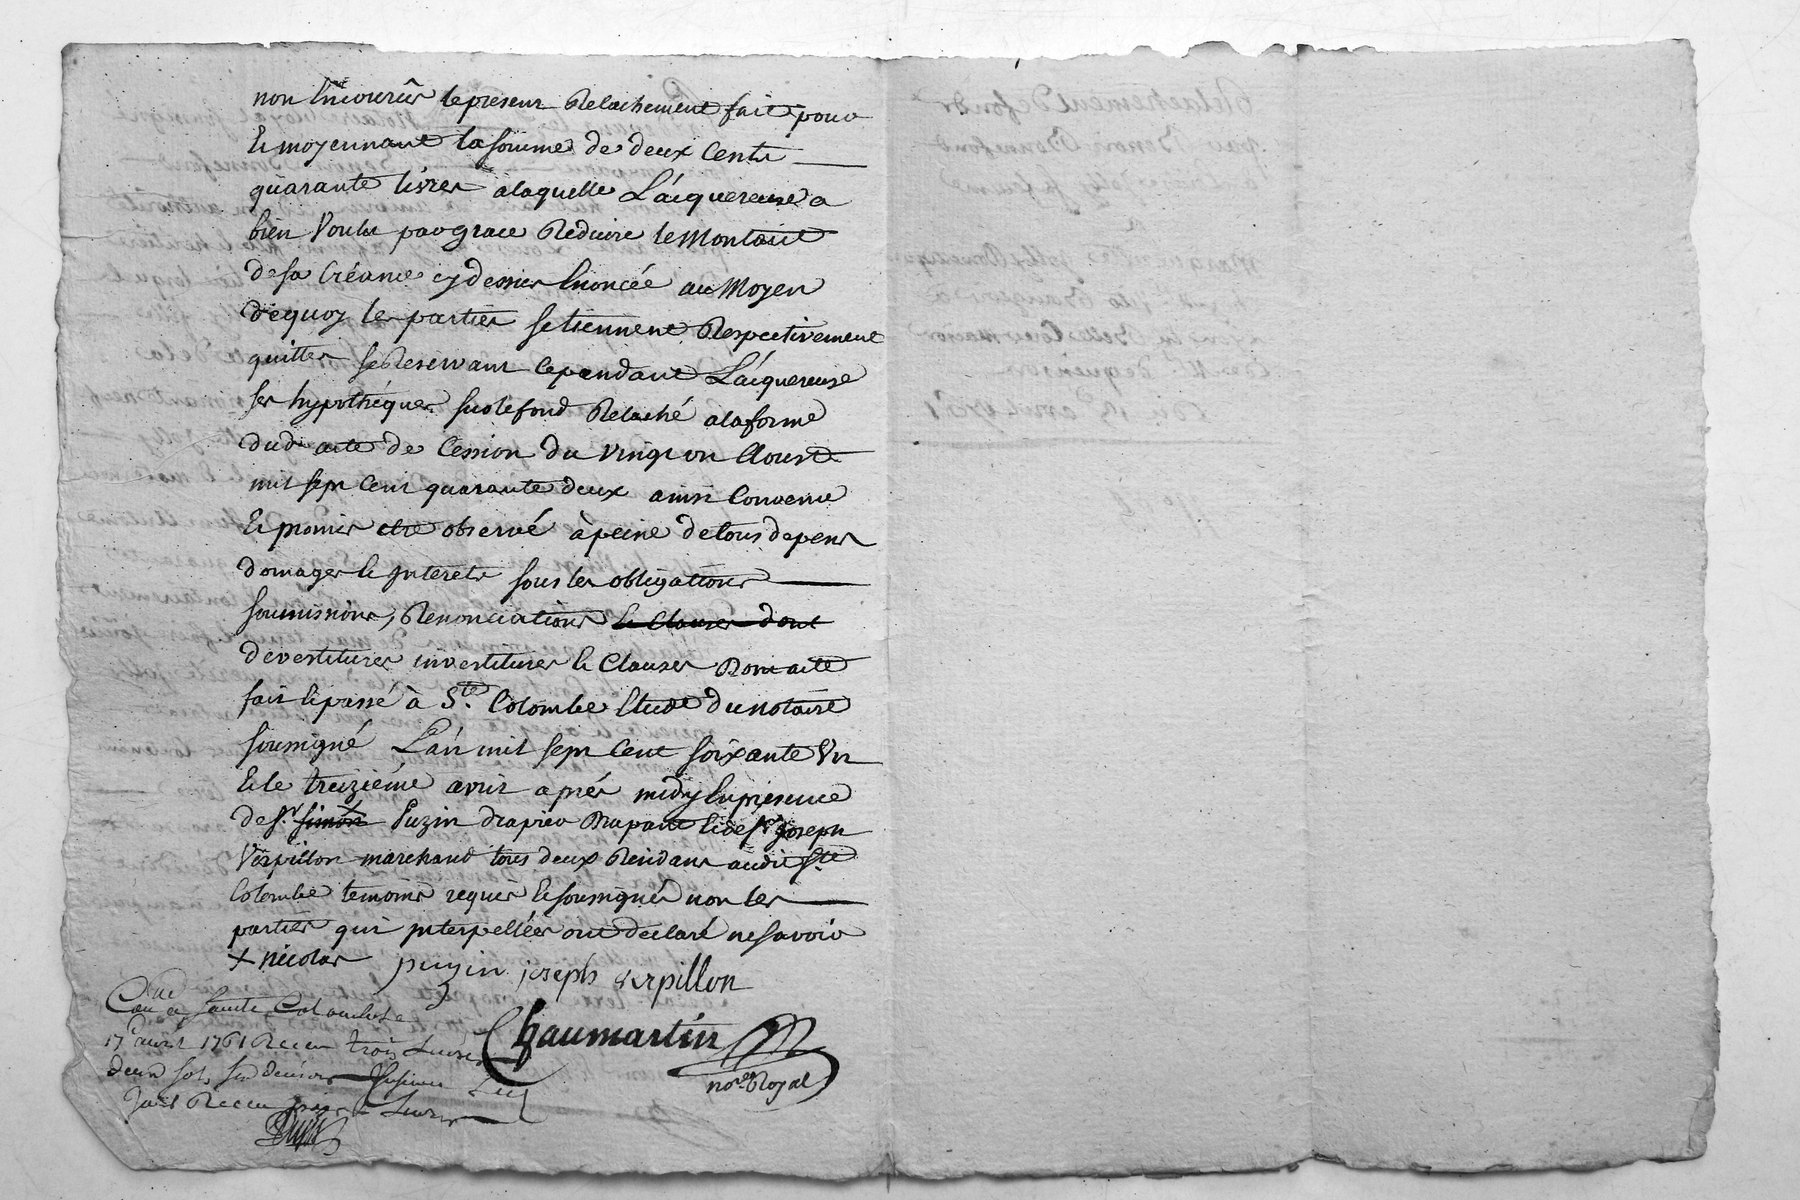 non Encouruës le present Relachement fait pour
Et moyennant la somme de deux Cents
quarante livres a laquelle L'acquereuse a
bien Voulu par grace Reduire le Montant
de sa Créance cy dessus Enoncée au Moyen
dequoy les parties se tiennent Respectivement
quittes se Reservant Cependant L'acquereuse
ses hypothéques sur le fond Relaché a la forme
dud. acte de Cession du Vingt un Aoust
mil sept Cent quarante deux ainsi Convenu
Et promis etre observé à peine de tous depens
domages Et Interets sous les obligations
soumissions, Renonciations Et Clauses dont
devestitures investitures Et Clauses Dont acte
fait Et passé à Ste. Colombe Etude du notaire
soussigné L'an mil sept Cent soixante Un
Et le treizième avril après midy En presence
de Sr. Simon Puzin drapier Drapant Et de Sr Joseph
Verpillon marchand tous deux Residans audit Ste
Colombe temoins requis Et soussignés non les
parties qui interpellées ont declaré ne savoir
+ nicolas puzin joseph verpillon
Chaumartin
nore. Royal
Con. a Sainte Colombe le
17e avril 1761 Receu trois Livres
deux sols six deniers
Receu trois Livres